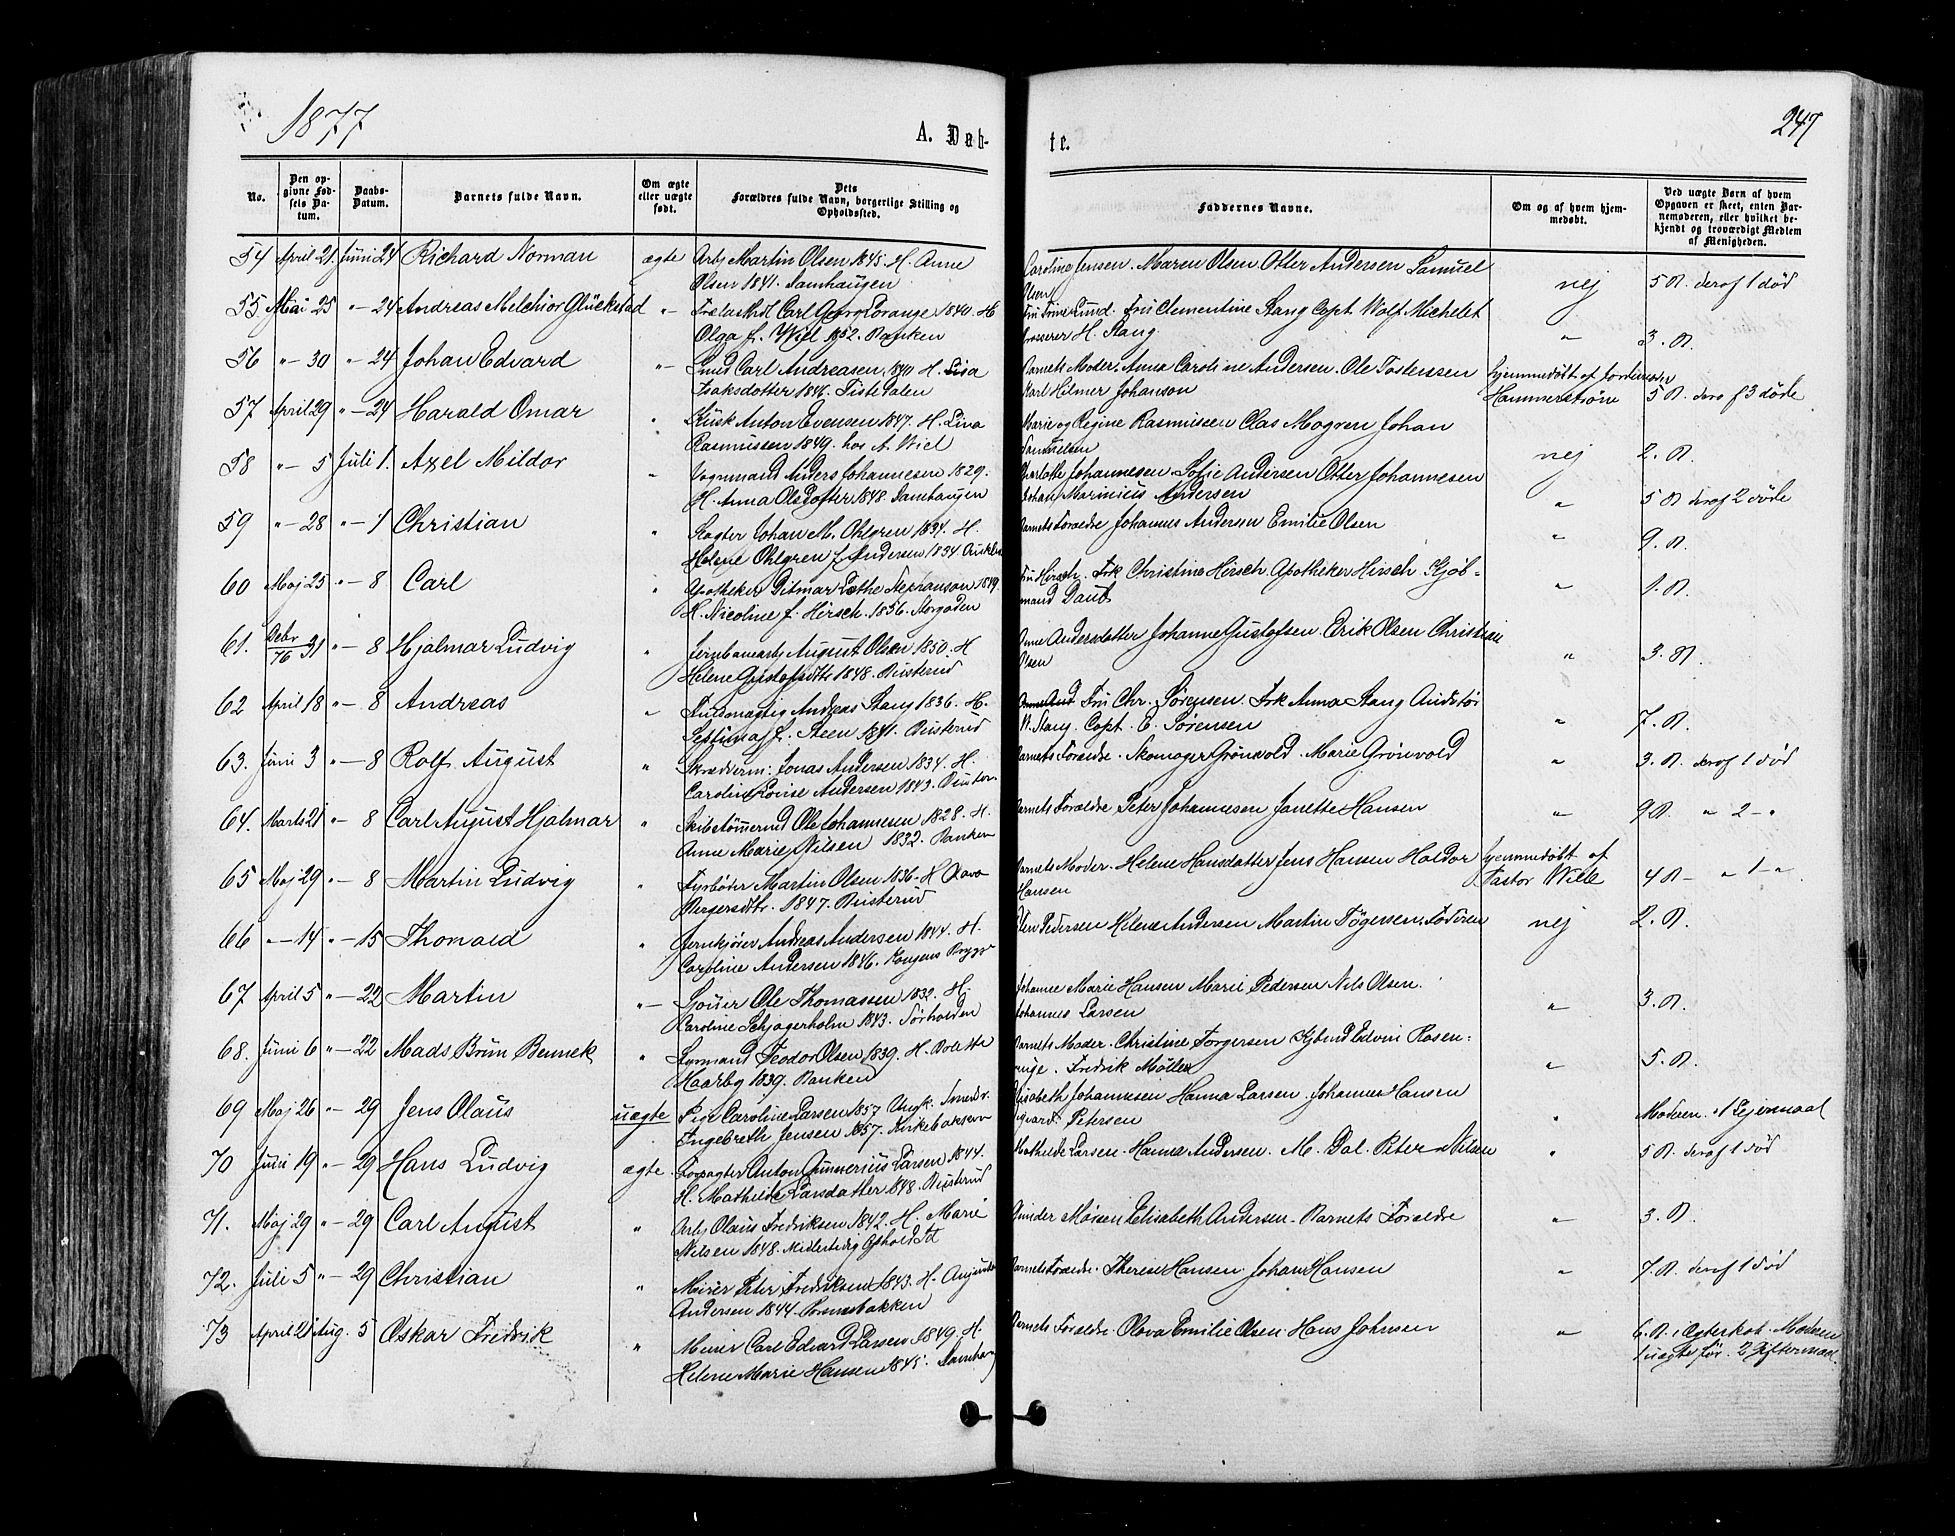 1877
247
A. Døb-
te.
No.
Den op-
givne Fød-
sels Da-
tum.
Daabs-
Datum.
Barnets fulde Navn.
Om ægte
eller uægte
født.
Dets
Forældres fulde Navn, borgerlige Stilling og
Opholdssted.
Faddernes Navne.
Om og af hvem hjem-
medøbt.
Ved uægte Børn af hvem
Opgaven er skeet, enten Bar-
nemoderen, eller hvilket be-
kjendt og troværdigt Medlem
af Menigheden.
54 April 21 Juni 24 Richard Norman ægte Arb Martin Olsen 1845. H. Anne
Olsen 1841. Damhaugen
Caroline Jensen. Maren Olsen Otter Andersen Samuel
Olsen
nej 5 B. deraf 1 død
55 Mai 25 " — 24 Andreas Melchior Glückstad " — Carl Georg Lorange 1840. H
Olga f. Wiel 1852. Banken
Fru Trine Lund. Fru Clementine Stang Capt. Wolf Michelet
H. Stang
" 3. B.
56 " — 30 " — 24 Johan Edvard " — Smed Carl Andreasen 1840 H. Lisa
Isaksdotter 1846. Tistedalen
Barnets Moder. Anna Caroline Andersen. Ole Tosterssen
Karl Hilmer Johanson
hjemmedøbt af Jordemoder
Hammerstrøm 5 B. deraf 3 døde
57 April 29 " — 24 Harald Omar " Kusk Anton Evensen 1847. H. Lina
Rasmussen 1849. hos A. Wiel
Marie og Regine Rasmussen Clas Mogren Johan
Samuelsen
nej 2. B.
58 " — 5 Juli 1. Axel Mildor " Vognmand Anders Johannesen 1829.
H. Anna Olsdatter 1848. Damhaugen
Charlotte Johannesen. Sofie Andersen Otter Johannesen
Johan Marinius Andersen
" 5 B deraf 2 døde
59 " — 28 " — 1 Christian " Slagter Johan M. Ohlgren 1834. H.
Helene Ohlgren f. Andersen 1834
Barnets Forældre Johannes Andersen Emilie Olsen
" 9. B.
60 Maj 25 " — 8 Carl " Apotheker Ditmar Lothe Nephanson 1849.
H. Nicoline f. Hirsch. 1856. Storgaden
Fru Hirsch. Frk Christine Hirsch. Apotheker Hirsch Kjøb-
mand Daub
" 1. B.
61. Debr 31/76 " — 8 Hjalmar Ludvig " Jernbanearb August Olsen 1850. H
Helene Gustafsdtr 1848. Busterud
Anne Andersdatter Johanne Gustafsen. Erik Olsen Christian
Olsen
" 3. B.
62 April 18 " — 8 Andreas " Fuldmægtig Andreas Stang 1836. H.
f. Steen 1841. Busterud
Fru Chr. Sørensen. Frk Anna Stang Auditør
N. Stang. Capt. E. Sørensen
" 7. B.
63. Juni 3 " — 8 Rolf August " Skrædderm: Jonas Andersen 1834. H.
Caroline Lovise Andersen 1843.
Barnets Forældre. Skomager Grönvold. Marie Grönvold
" 3. B. deraf 1 død
64. Marts 21 " — 8 Carl August Hjalmar " Skibstømmermd Ole Johannesen 1828. H.
Anne Marie Nilsen 1832. Banken
Barnets Forældre Peter Johannesen Janette Hansen
" 9 B. " 2 — "
65 Maj 29 " — 8 Martin Ludvig " Fyrbøder Martin Olsen 1836. H
Bergersdtr. 1847. Busterud
Barnets Moder. Helene Hansdatter Jens Hansen Haldor
Hansen
hjemmedøbt af
Pastor Wille 4 B — " 1 — "
66 " — 14 " — 15 Thorvald " Jernkjører Andreas Andersen 1844. H.
Caroline Andersen 1846. Kongens Brygge
Pedersen Helene Andersen Martin Tøgersen. Faderen
nej 2. B.
67 April 5 " — 22 Martin " — Ole Thomassen 1832. H.
Karoline Schjagerholm 1843. Sørhalden
Johanne Marie Hansen Marie Pedersen Nils Olsen.
Johannes Larsen
" 3. B.
68. Juni 6 " — 22 Mads Brun Bennek " Styrmand Teodor Olsen 1839. H. Bolette
Haarby 1839. Banken
Barnets Moder. Christine Torgersen Edvin Rosen-
Fredrik Møller
" 5. B.
69 Maj 26 " — 29 Jens Olaus uægte Pige Caroline Larsen 1857. Ungk: Smedsv.
Ingebreth Jensen 1857. Kirkebakken
Elisabeth Johannesen Hanna Larsen. Johannes Hansen
Petersen
" Moderen. 1 Lejermaal
70 Juni 19 " — 29 Hans Ludvig ægte. Anton Gunnerius Larsen 1844.
H. Mathilde Larsdatter 1848. Busterud
Mathilde Larsen. Hanna Andersen. M. Dal. Peter Nilsen
" 5 B. deraf 1 død
71. Maj 29 " — 29 Carl August " Arbj Olaus Fredriksen 1842. H. Marie
Nilsen 1848. Midlertidig Ophold
Elisabeth Andersen. Barnets Forældre
" 3. B.
72. Juli 5 " — 29 Christian " Murer Peter Fredriksen 1843. H. Auguste
Andersen 1844.
Barnets Forældre. Therese Hansen. Johan Hansen
" 7. B. deraf 1 død
73 April 21 Aug. 5 Oskar Fredrik " Murer Carl Edvard Larsen 1849. H.
Helene Marie Hansen 1845. Damhaug
Barnets Forældre. Olava Emilie Olsen. Hans Johnsen
" 6. B. i Ægteskab. Moderen
1 uægte før. 2 Giftermaal.